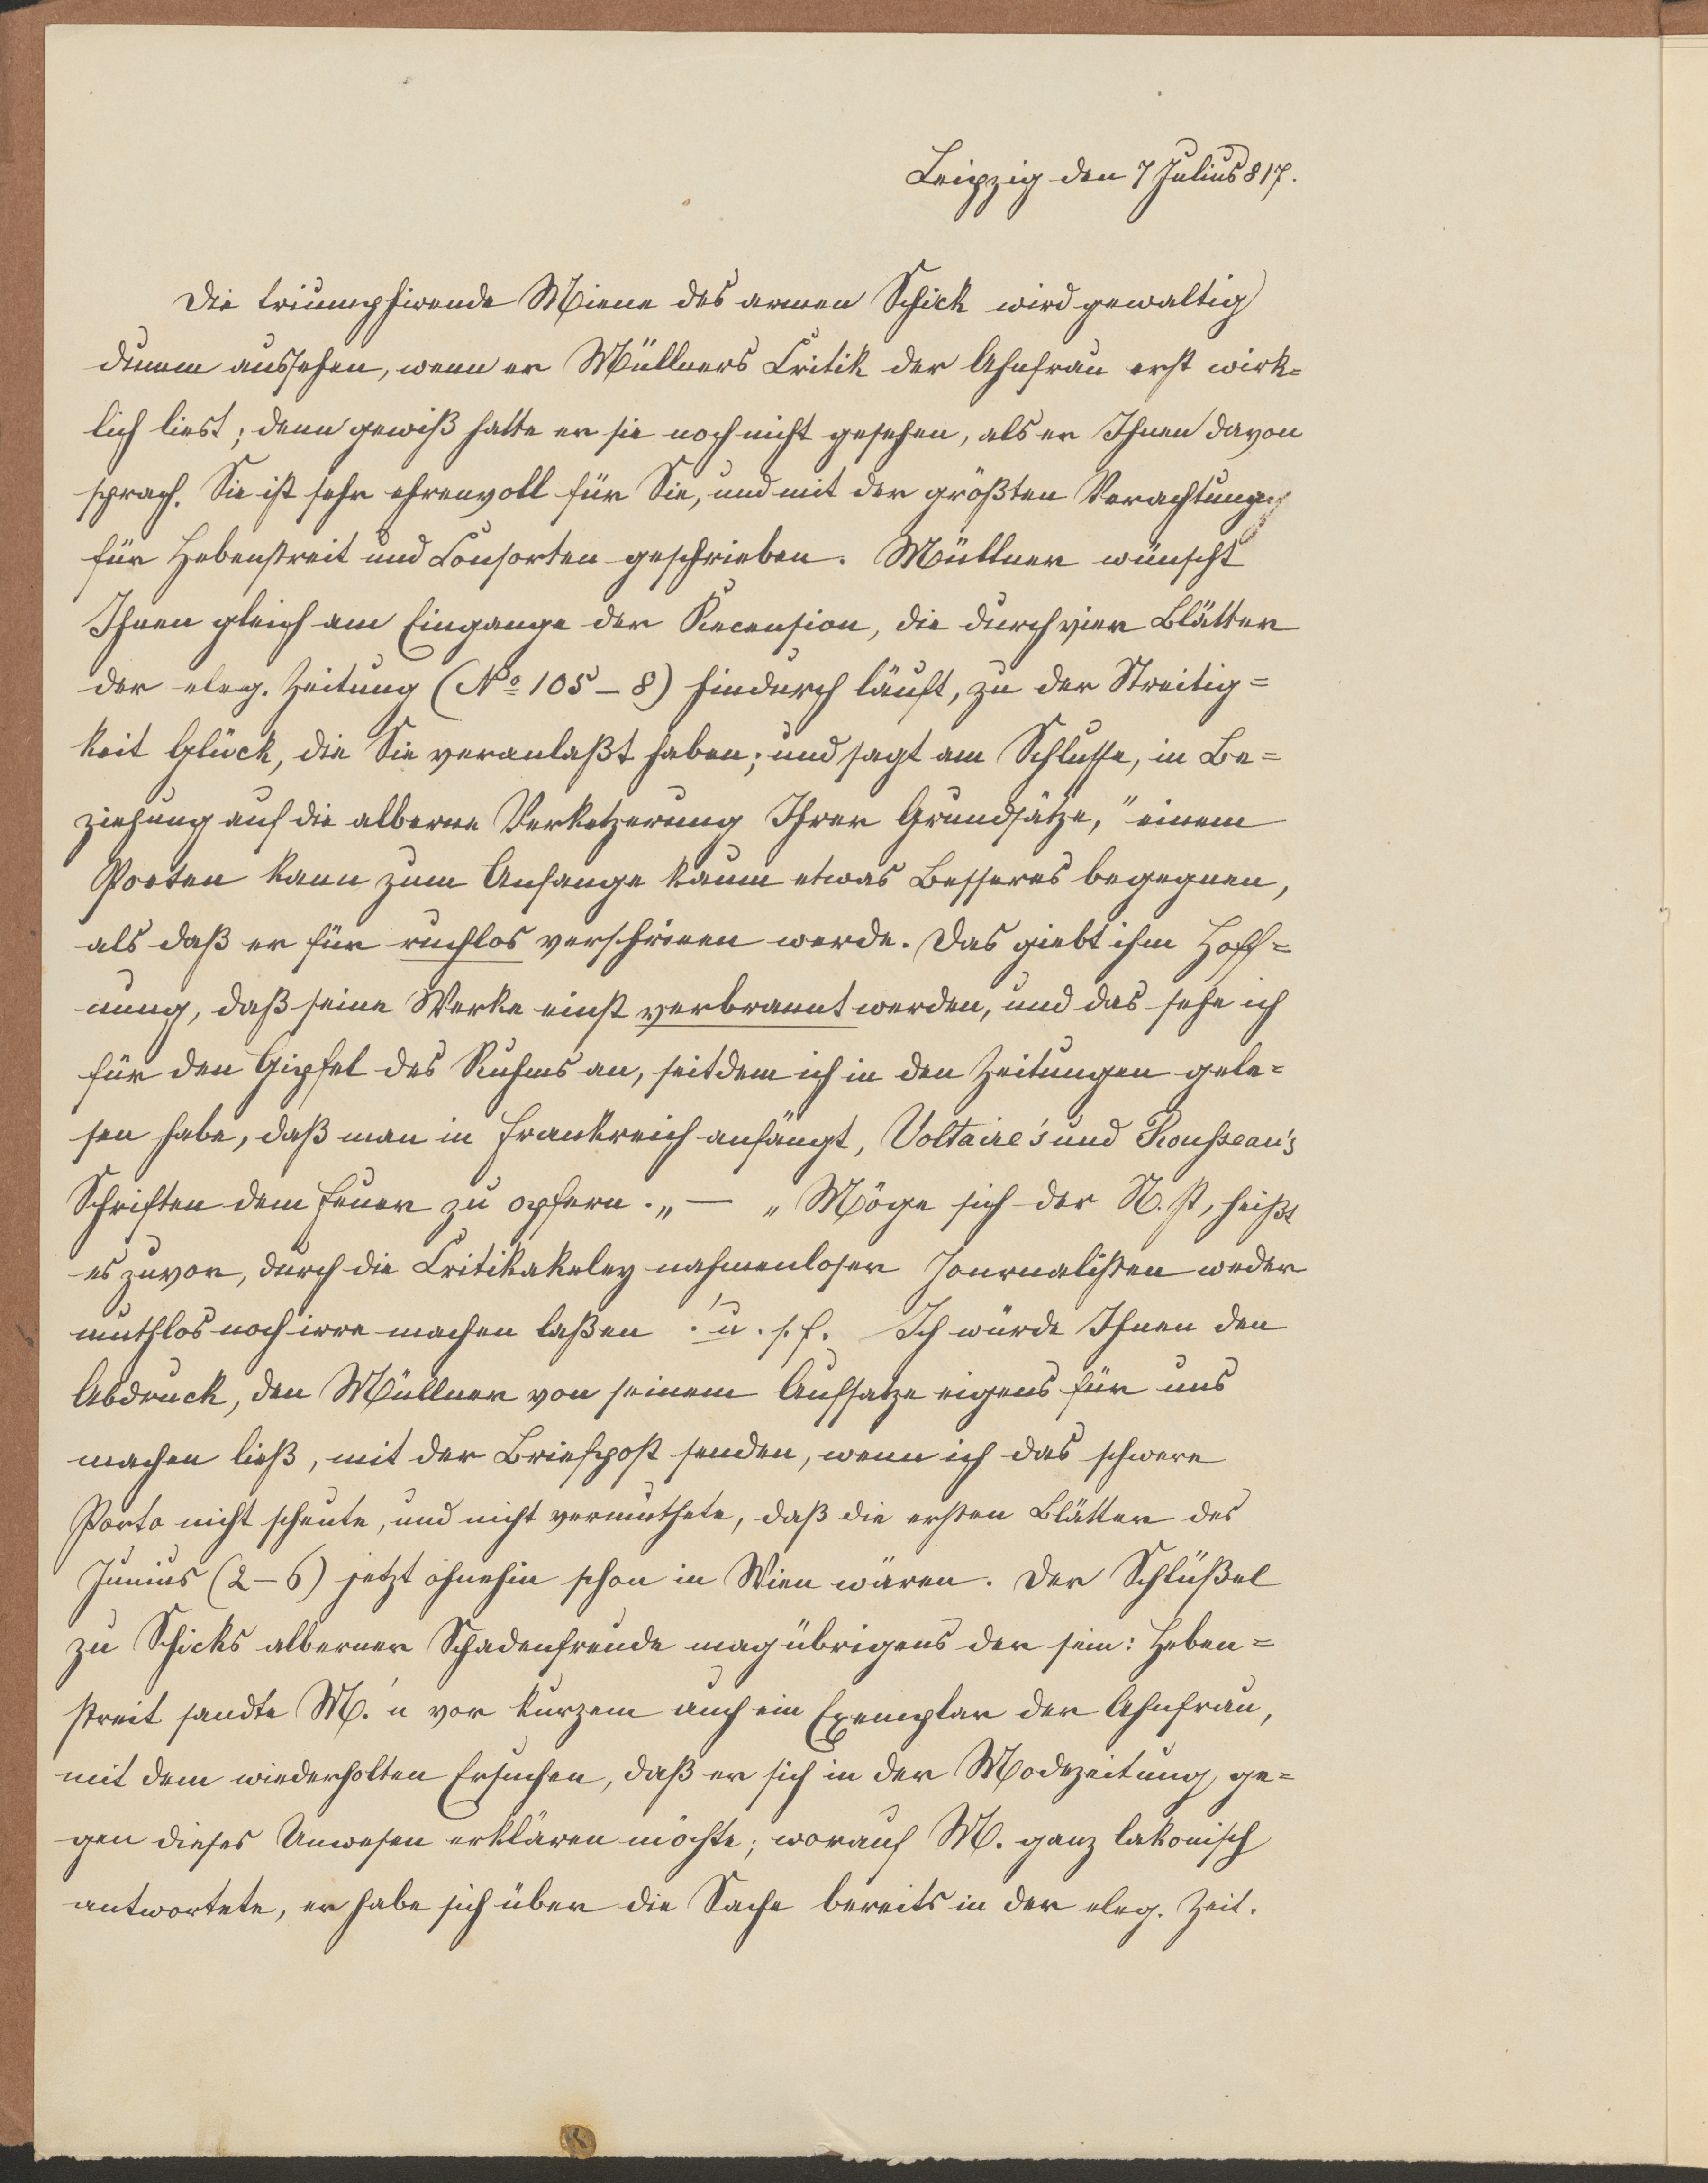 Leipzig den 7 Julius 817.
Die triumphirende Miene des armen Schick wird gewaltig
dumm aussehen, wenn er Müllners Critik der Ahnfrau erst wirk=
lich liest; denn gewiß hatte er sie noch nicht gesehen, als er Ihnen davon
sprach. Sie ist sehr ehrenvoll für Sie, und mit der größten Verachtung
für Hebenstreit und Consorten geschrieben. Müllner wünscht
Ihnen gleich am Eingange der Recension, die durch vier Blätter
der eleg. Zeitung (No 105 – 8) hindurch läuft, zu der Streitig=
keit Glück, die Sie veranlaßt haben; und sagt am Schlusse, in Be=
ziehung auf die alberne Verketzerung Ihrer Grundsätze, "einem
Poeten kann zum Anfange kaum etwas Besseres begegnen,
als daß er für ruchlos verschrieen werde. Das giebt ihm Hoff=
nung, daß seine Werke einst verbrannt werden, und das sehe ich
für den Gipfel des Ruhms an, seitdem ich in den Zeitungen gele=
sen habe, daß man in Frankreich anfängt, Voltaire's und Rousseau's
Schriften dem Feuer zu opfern. „ — „ Möge sich der N. st, heißt
es zuvor, durch die Critikakeley nahmenloser Journalisten weder
muthlos noch irre machen laßen . u. s. f. Ich würde Ihnen den
Abdruck, den Müllner von seinem Aufsatze eigens für uns
machen ließ, mit der Briefpost senden, wenn ich das schwere
Porto nicht scheute, und nicht vermuthete, daß die ersten Blätter des
Junius (2 – 6) jetzt ohnehin schon in Wien wären. Der Schlüßel
zu Schicks alberner Schadenfreude mag übrigens der sein: Heben=
streit sandte M.'n vor kurzem auch ein Exemplar der Ahnfrau,
mit dem wiederholten Ersuchen, daß er sich in der Modezeitung ge=
gen dieses Unwesen erklären möchte; worauf M. ganz lakonisch
antwortete, er habe sich über die Sache bereits in der eleg. Zeit.